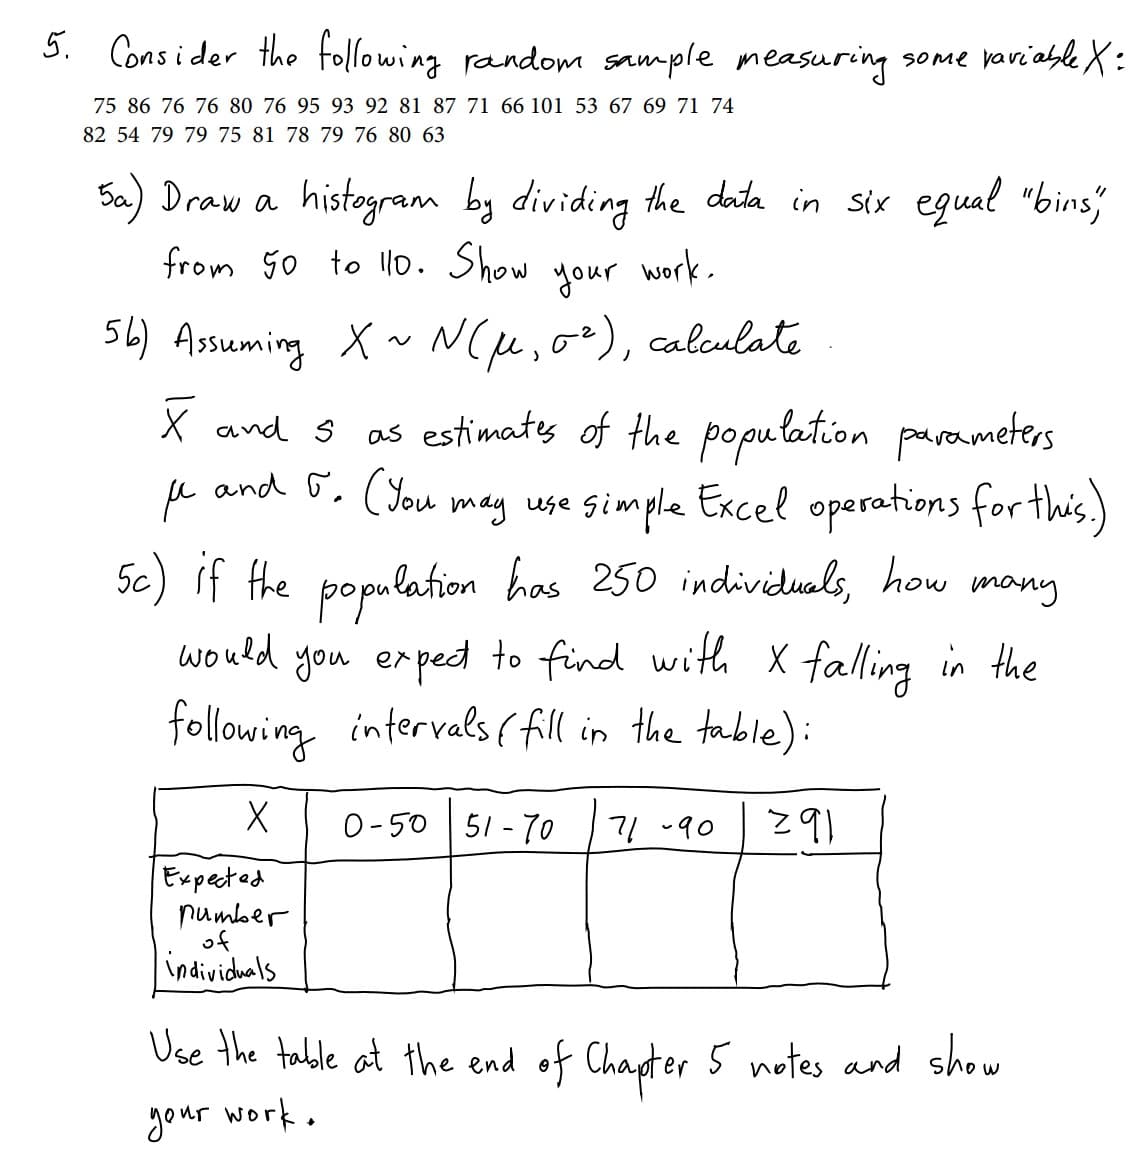 5. Consider the following random sample measuring some variable X:
75 86 76 76 80 76 95 93 92 81 87 71 66 101 53 67 69 71 74
82 54 79 79 75 81 78 79 76 80 63
5a) Draw a histogram by dividing the data in six equal "bins,"
from 50 to 110. Show your work.
5b) Assuming X ~ N(μ, σ²), calculate
X̄ and s as estimates of the population parameters
μ and σ. (You may use simple Excel operations for this.)
5c) if the population has 250 individuals, how many
would you expect to find with X falling in the
following intervals (fill in the table):
X 0-50 51-70 71-90 ≥91
Expected
number
of
individuals
Use the table at the end of Chapter 5 notes and show
your work.